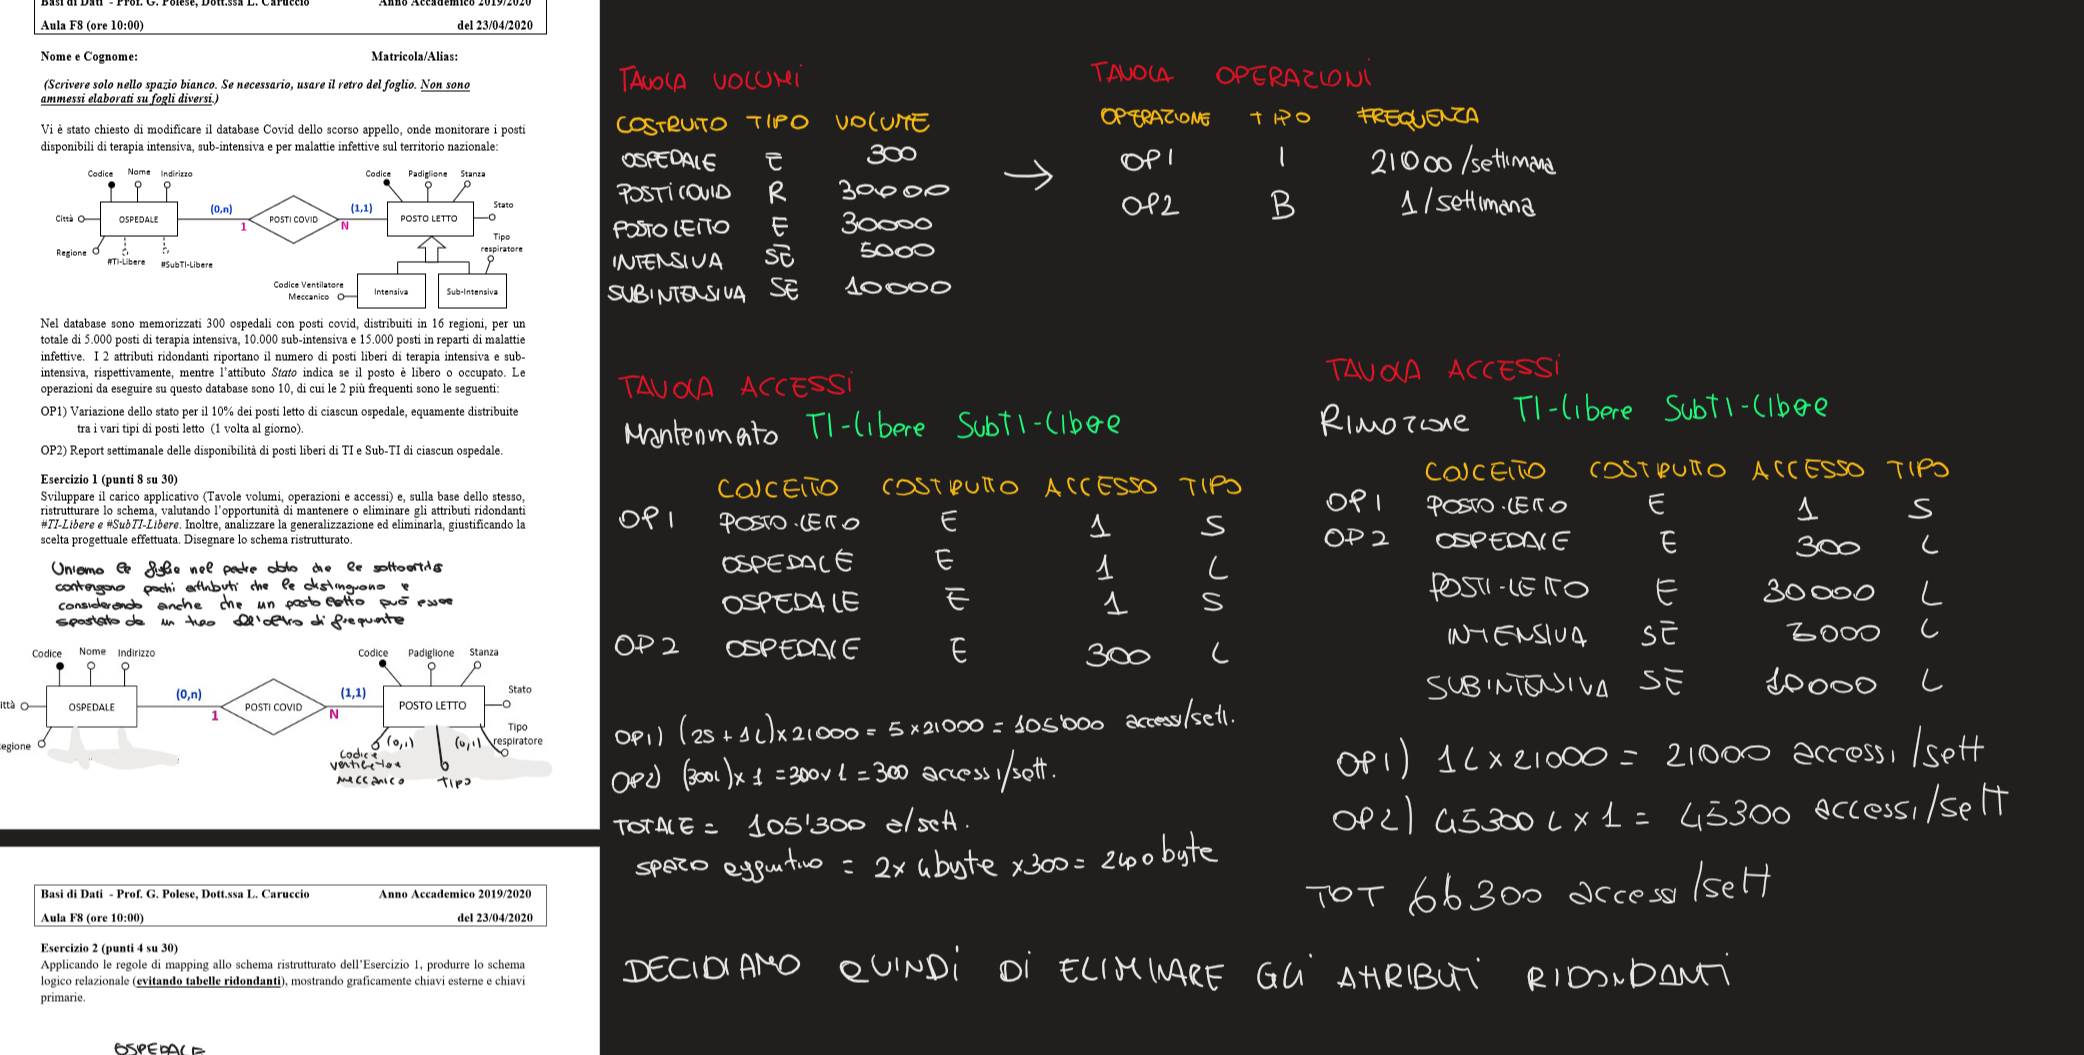 Basi di Dati - Prof. G. Polese, Dott.ssa L. Caruccio Anno Accademico 2019/2020
Aula F8 (ore 10:00) del 23/04/2020
Nome e Cognome: Matricola/Alias:
(Scrivere solo nello spazio bianco. Se necessario, usare il retro del foglio. Non sono
ammessi elaborati su fogli diversi.)
Vi è stato chiesto di modificare il database Covid dello scorso appello, onde monitorare i posti
disponibili di terapia intensiva, sub-intensiva e per malattie infettive sul territorio nazionale:
Codice Nome Indirizzo Codice Padiglione Stanza
Città OSPEDALE (0,n) 1 POSTI COVID (1,1) N POSTO LETTO Stato
Regione #TI-Libere #SubTI-Libere Tipo
respiratore
Codice Ventilatore
Meccanico Intensiva Sub-Intensiva
Nel database sono memorizzati 300 ospedali con posti covid, distribuiti in 16 regioni, per un
totale di 5.000 posti di terapia intensiva, 10.000 sub-intensiva e 15.000 posti in reparti di malattie
infettive. I 2 attributi ridondanti riportano il numero di posti liberi di terapia intensiva e sub-
intensiva, rispettivamente, mentre l'attibuto Stato indica se il posto è libero o occupato. Le
operazioni da eseguire su questo database sono 10, di cui le 2 più frequenti sono le seguenti:
OP1) Variazione dello stato per il 10% dei posti letto di ciascun ospedale, equamente distribuite
tra i vari tipi di posti letto (1 volta al giorno).
OP2) Report settimanale delle disponibilità di posti liberi di TI e Sub-TI di ciascun ospedale.
Esercizio 1 (punti 8 su 30)
Sviluppare il carico applicativo (Tavole volumi, operazioni e accessi) e, sulla base dello stesso,
ristrutturare lo schema, valutando l'opportunità di mantenere o eliminare gli attributi ridondanti
#TI-Libere e #SubTI-Libere. Inoltre, analizzare la generalizzazione ed eliminarla, giustificando la
scelta progettuale effettuata. Disegnare lo schema ristrutturato.
Uniamo le figlie nel padre dato che le sottoentità
contengono pochi attributi che le distinguono e
considerando anche che un posto letto può esse
spostato da un tipo all'altro di frequente
Codice Nome Indirizzo Codice Padiglione Stanza
ittà OSPEDALE (0,n) 1 POSTI COVID (1,1) N POSTO LETTO Stato
egione (0,1) (0,1) Tipo
respiratore
Codice
ventilatore
meccanico TIPO
Basi di Dati - Prof. G. Polese, Dott.ssa L. Caruccio Anno Accademico 2019/2020
Aula F8 (ore 10:00) del 23/04/2020
Esercizio 2 (punti 4 su 30)
Applicando le regole di mapping allo schema ristrutturato dell'Esercizio 1, produrre lo schema
logico relazionale (evitando tabelle ridondanti), mostrando graficamente chiavi esterne e chiavi
primarie.
OSPEDALE
TAVOLA VOLUMI
COSTRUTTO TIPO VOLUME
OSPEDALE E 300
POSTI COVID R 30000
POSTO LETTO E 30000
INTENSIVA SE 5000
SUBINTENSIVA SE 10000
TAVOLA OPERAZIONI
OPERAZIONE TIPO FREQUENZA
OP1 I 21000/settimana
OP2 B 1/settimana
TAVOLA ACCESSI
Mantenimento TI-libere SubTI-libere
CONCETTO COSTRUTTO ACCESSO TIPO
OP1 POSTO-LETTO E 1 S
OSPEDALE E 1 L
OSPEDALE E 1 S
OP2 OSPEDALE E 300 L
OP1) (2S + 1L) x 21000 = 5 x 21000 = 105'000 accessi/sett.
OP2) (300L) x 1 = 300 L = 300 accessi/sett.
TOTALE = 105'300 a/sett.
spazio aggiuntivo = 2x 4byte x300= 2400byte
TAVOLA ACCESSI
Rimozione TI-libere SubTI-libere
CONCETTO COSTRUTTO ACCESSO TIPO
OP1 POSTO-LETTO E 1 S
OP2 OSPEDALE E 300 L
POSTI-LETTO E 30000 L
INTENSIVA SE 5000 L
SUBINTENSIVA SE 10000 L
OP1) 1L x 21000 = 21000 accessi/sett
OP2) 45300 L x 1 = 45300 accessi/sett
TOT 66300 accessi/sett
DECIDIAMO QUINDI DI ELIMINARE GLI ATTRIBUTI RIDONDANTI